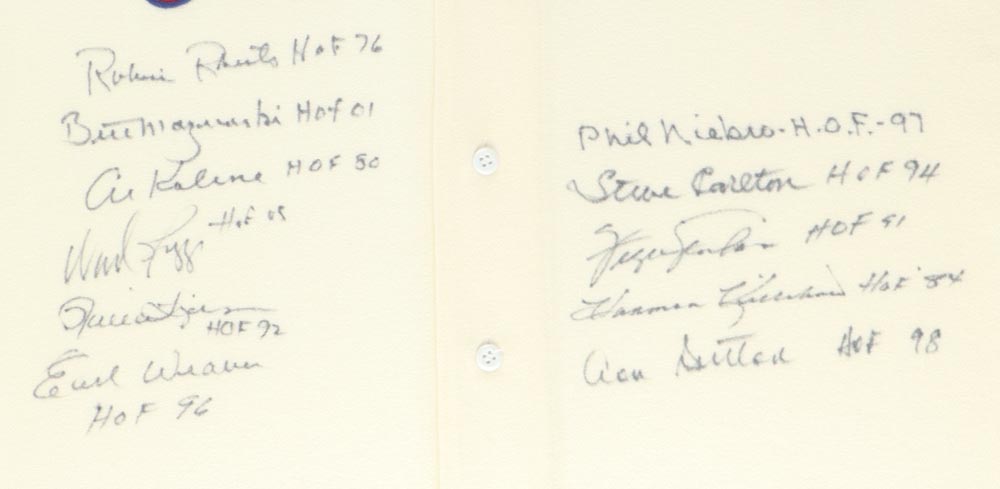 Robin Roberts HOF 76
Bill Mazeroski HOF 01
Al Kaline HOF 80
Wade Boggs HOF 05
Rollie Fingers
HOF 92
Earl Weaver
HOF 96
Phil Niekro - H.O.F. - 97
Steve Carlton HOF 94
Fergie Jenkins HOF 91
Harmon Killebrew HOF '84
Don Sutton HOF 98